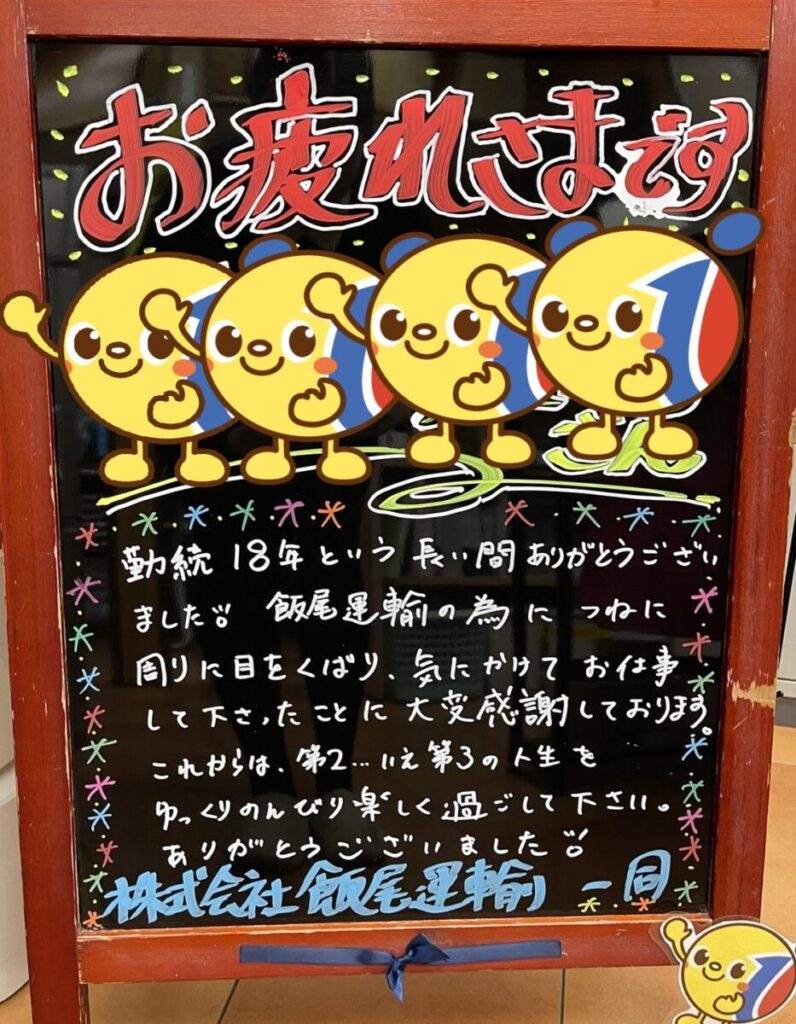 お疲れさまです
さん
勤続18年という長い間ありがとうござい
ました!! 飯尾運輸の為につねに
周りに目をくばり、気にかけてお仕事
して下さったことに大変感謝しております。
これからは、第2…いえ第3の人生を
ゆっくりのんびり楽しく過ごして下さい。
ありがとうございました!!
株式会社飯尾運輸 一同